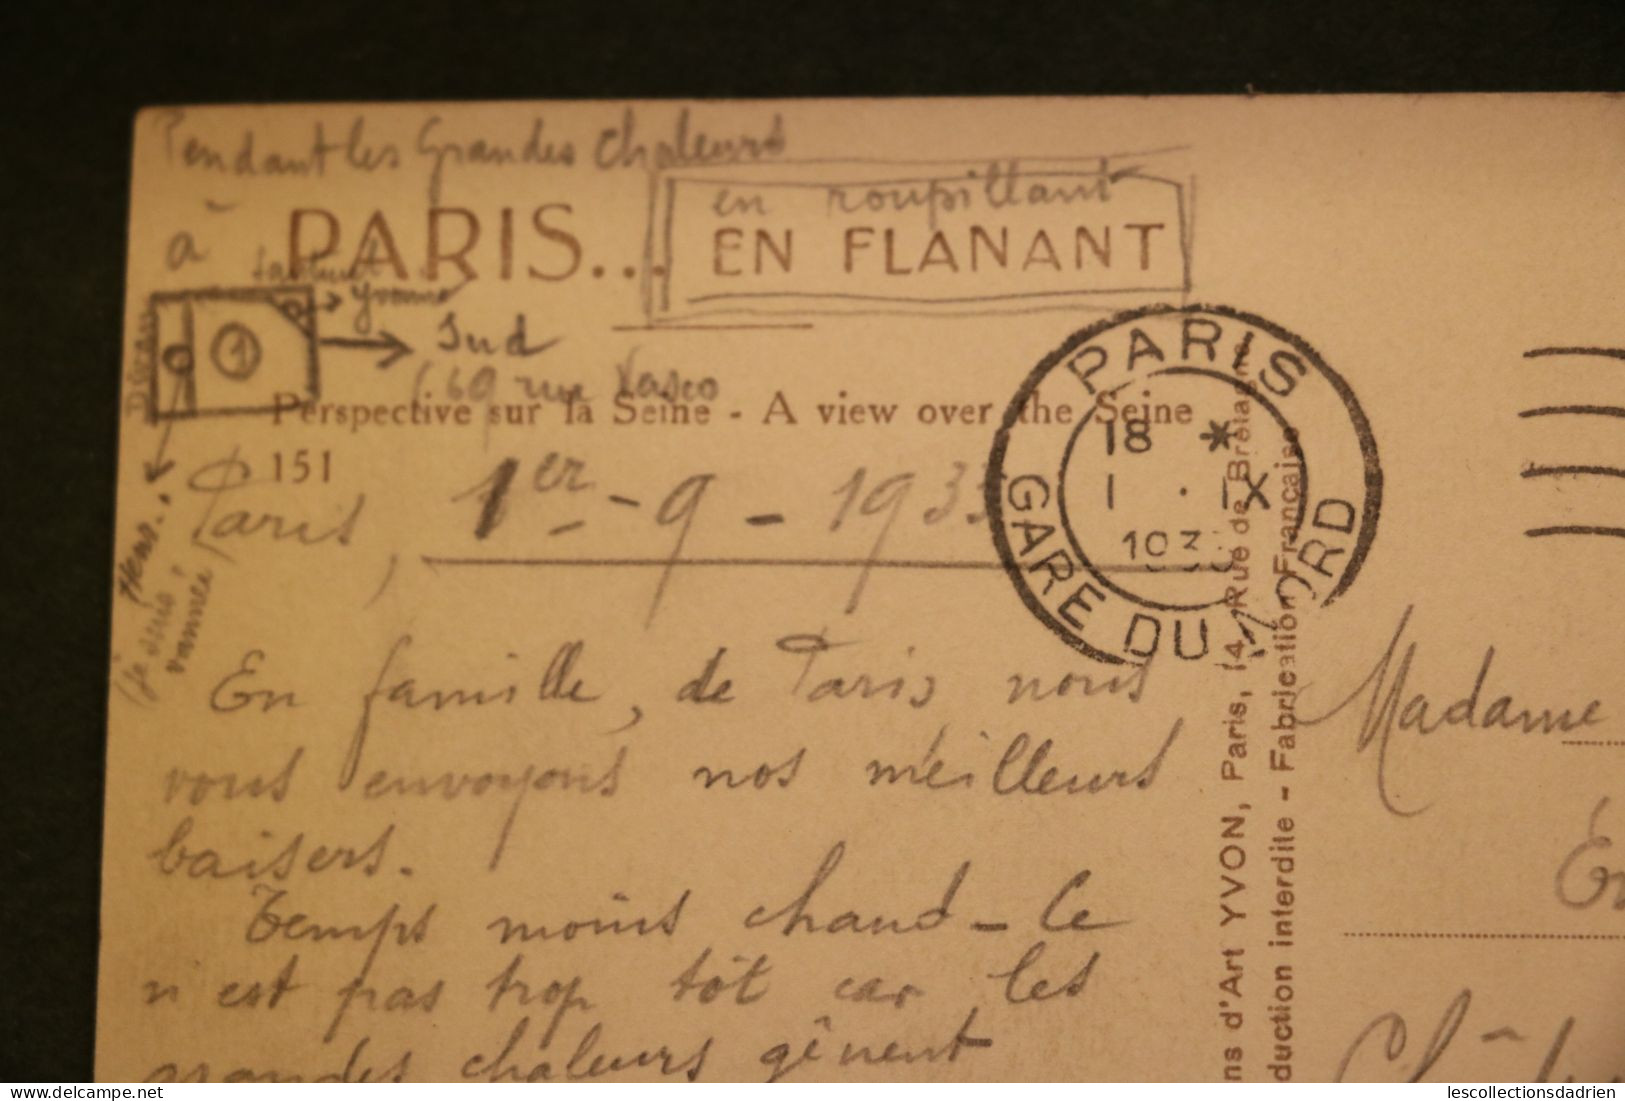 Pendant les Grandes Chaleurs
à
PARIS...
en roupillant
EN FLANANT
Yvonne
Sud
69 rue Vasco
DIVAN
1
Perspective sur la Seine - A view over the Seine
151
PARIS
18 *
1 . IX
193
GARE DU NORD
(je suis
Paris, 1er - 9 - 1933
En famille, de Paris nous
vous envoyons nos meilleurs
baisers.
Temps moins chaud - Ce
n'est pas trop tôt car les
grandes chaleurs gênent
Madame
ns d'Art YVON, Paris, 14, Rue de Bretagne
duction interdite - Fabrication Française
lescollectionsdadrien